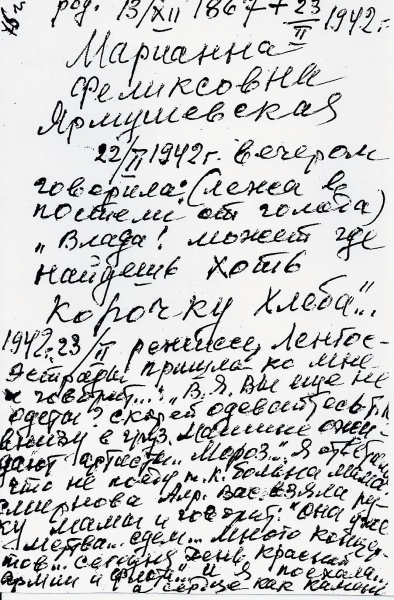 род. 13/XII 1867 + 23/II 1942 г.
Марианна
Феликсовна
Ярмушевская
22/II 1942 г. вечером
говорила: (лежа в
постели от голода)
„Влада! может где
найдешь хоть
корочку хлеба"...
1942 23/II режиссер Ленгос-
эстрады пришла ко мне
и говорит...: „В. Я. Вы еще не
одеты? скорей одевайтесь
внизу в груз. машине ожи-
дают артисты.. Мороз.." Я ответила
что не поеду т. к. больна мама.
Смирнова Алр. Вас. взяла ру-
ку мамы и говорит: "она уже
мертва... едем... много концер-
тов... сегодня день красной
армии и флота.." и я поехала...
а сердце как камень